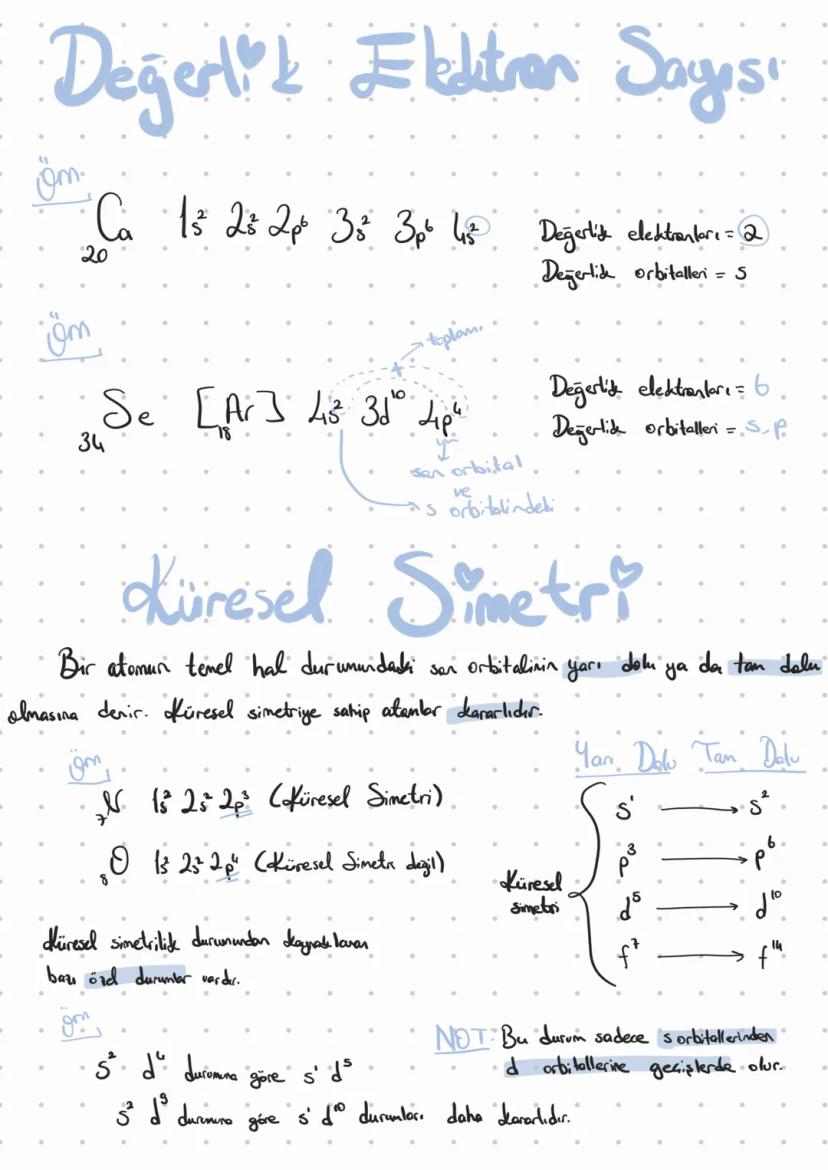 Değerlik Elektron Sayısı
Örn
₂₀Ca 1s² 2s² 2p⁶ 3s² 3p⁶ 4s²
Değerlik elektronları = 2
Değerlik orbitalleri = s
Örn
toplamı
+
₃₄Se [₁₈Ar] 4s² 3d¹⁰ 4p⁴
Değerlik elektronları = 6
Değerlik orbitalleri = s, p
son orbital
ve
s orbitalindeki
Küresel Simetri
Bir atomun temel hal durumundaki son orbitalinin yarı dolu ya da tam dolu
olmasına denir. Küresel simetriye sahip atomlar kararlıdır.
Örn
₇N 1s² 2s² 2p³ (Küresel Simetri)
₈O 1s² 2s² 2p⁴ (Küresel Simetri değil)
Yarı Dolu Tam Dolu
Küresel
simetri
s¹ → s²
p³ → p⁶
d⁵ → d¹⁰
f⁷ → f¹⁴
Küresel simetrilik durumundan kaynaklanan
bazı özel durumlar vardır.
Örn
s² d⁴ durumuna göre s¹ d⁵
s² d⁹ durumuna göre s¹ d¹⁰ durumları daha kararlıdır.
NOT: Bu durum sadece s orbitallerinden
d orbitallerine geçişlerde olur.